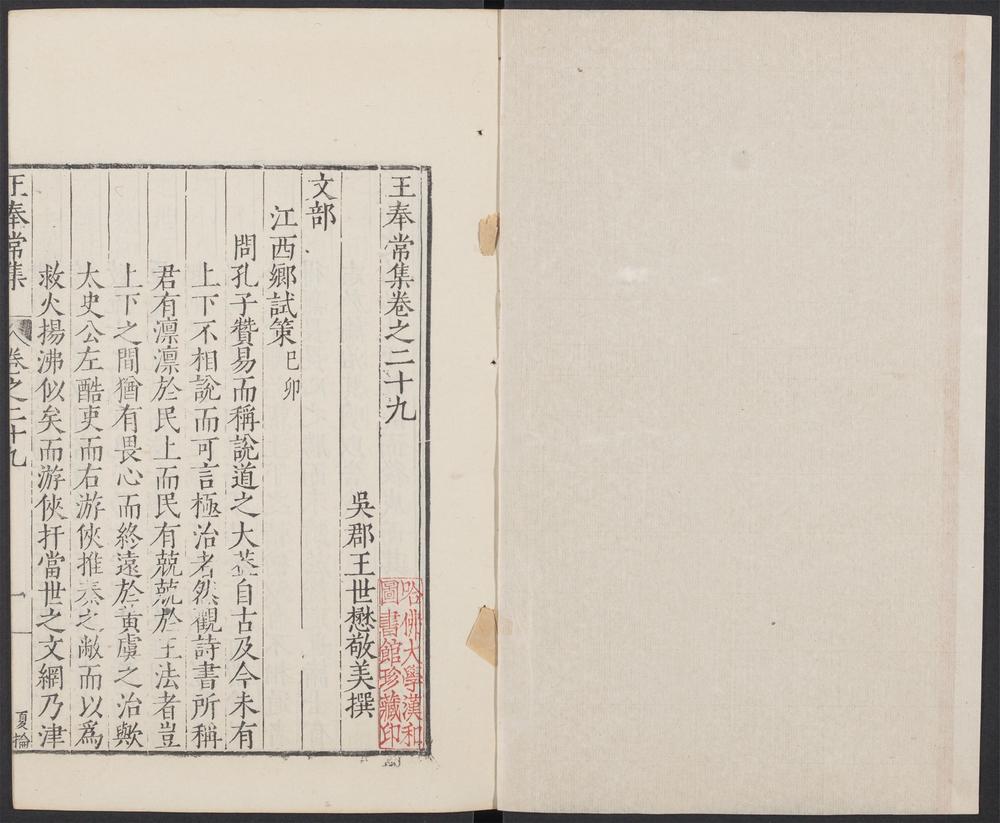 王奉常集卷之二十九
吳郡王世懋敬美撰
哈佛大學漢和
圖書館珍藏印
文部
江西鄉試策己卯
問孔子贊易而稱說道之大莖自古及今未有
上下不相說而可言極治者然觀詩書所稱
君有凛凛於民上而民有兢兢於王法者豈
上下之間猶有畏心而終遠於黃虞之治歟
太史公左酷吏而右游俠推秦之敝而以為
救火揚沸似矣而游俠扞當世之文網乃津
王奉常集
卷之二十九
一
夏掄